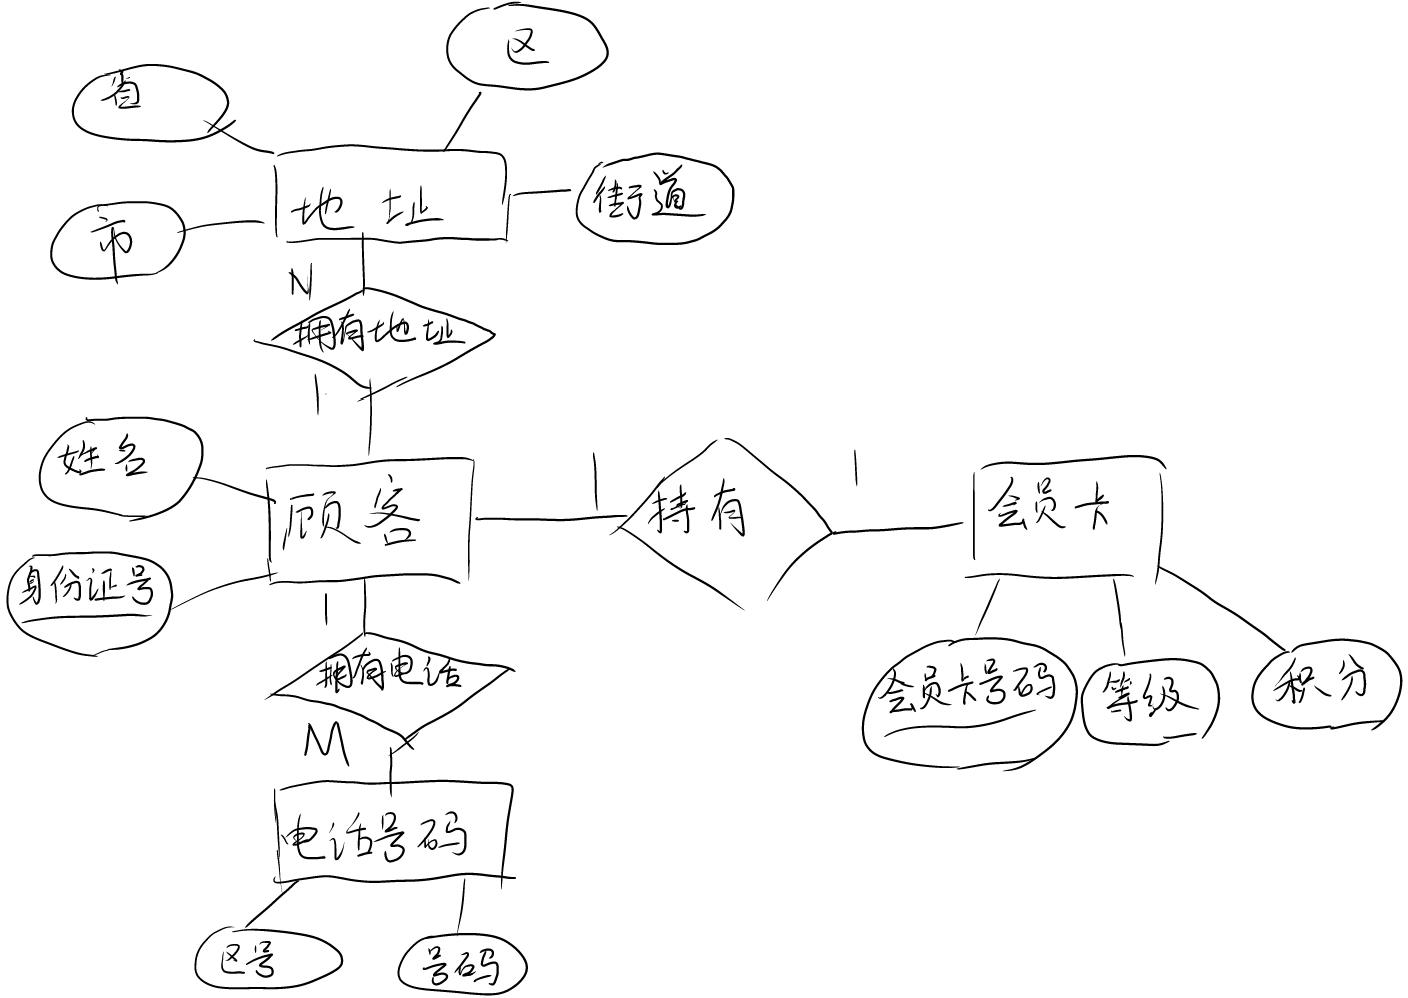 区
省
地址
街道
市
N
拥有地址
1
姓名
顾客
1
持有
1
会员卡
身份证号
1
拥有电话
M
会员卡号码
等级
积分
电话号码
区号
号码